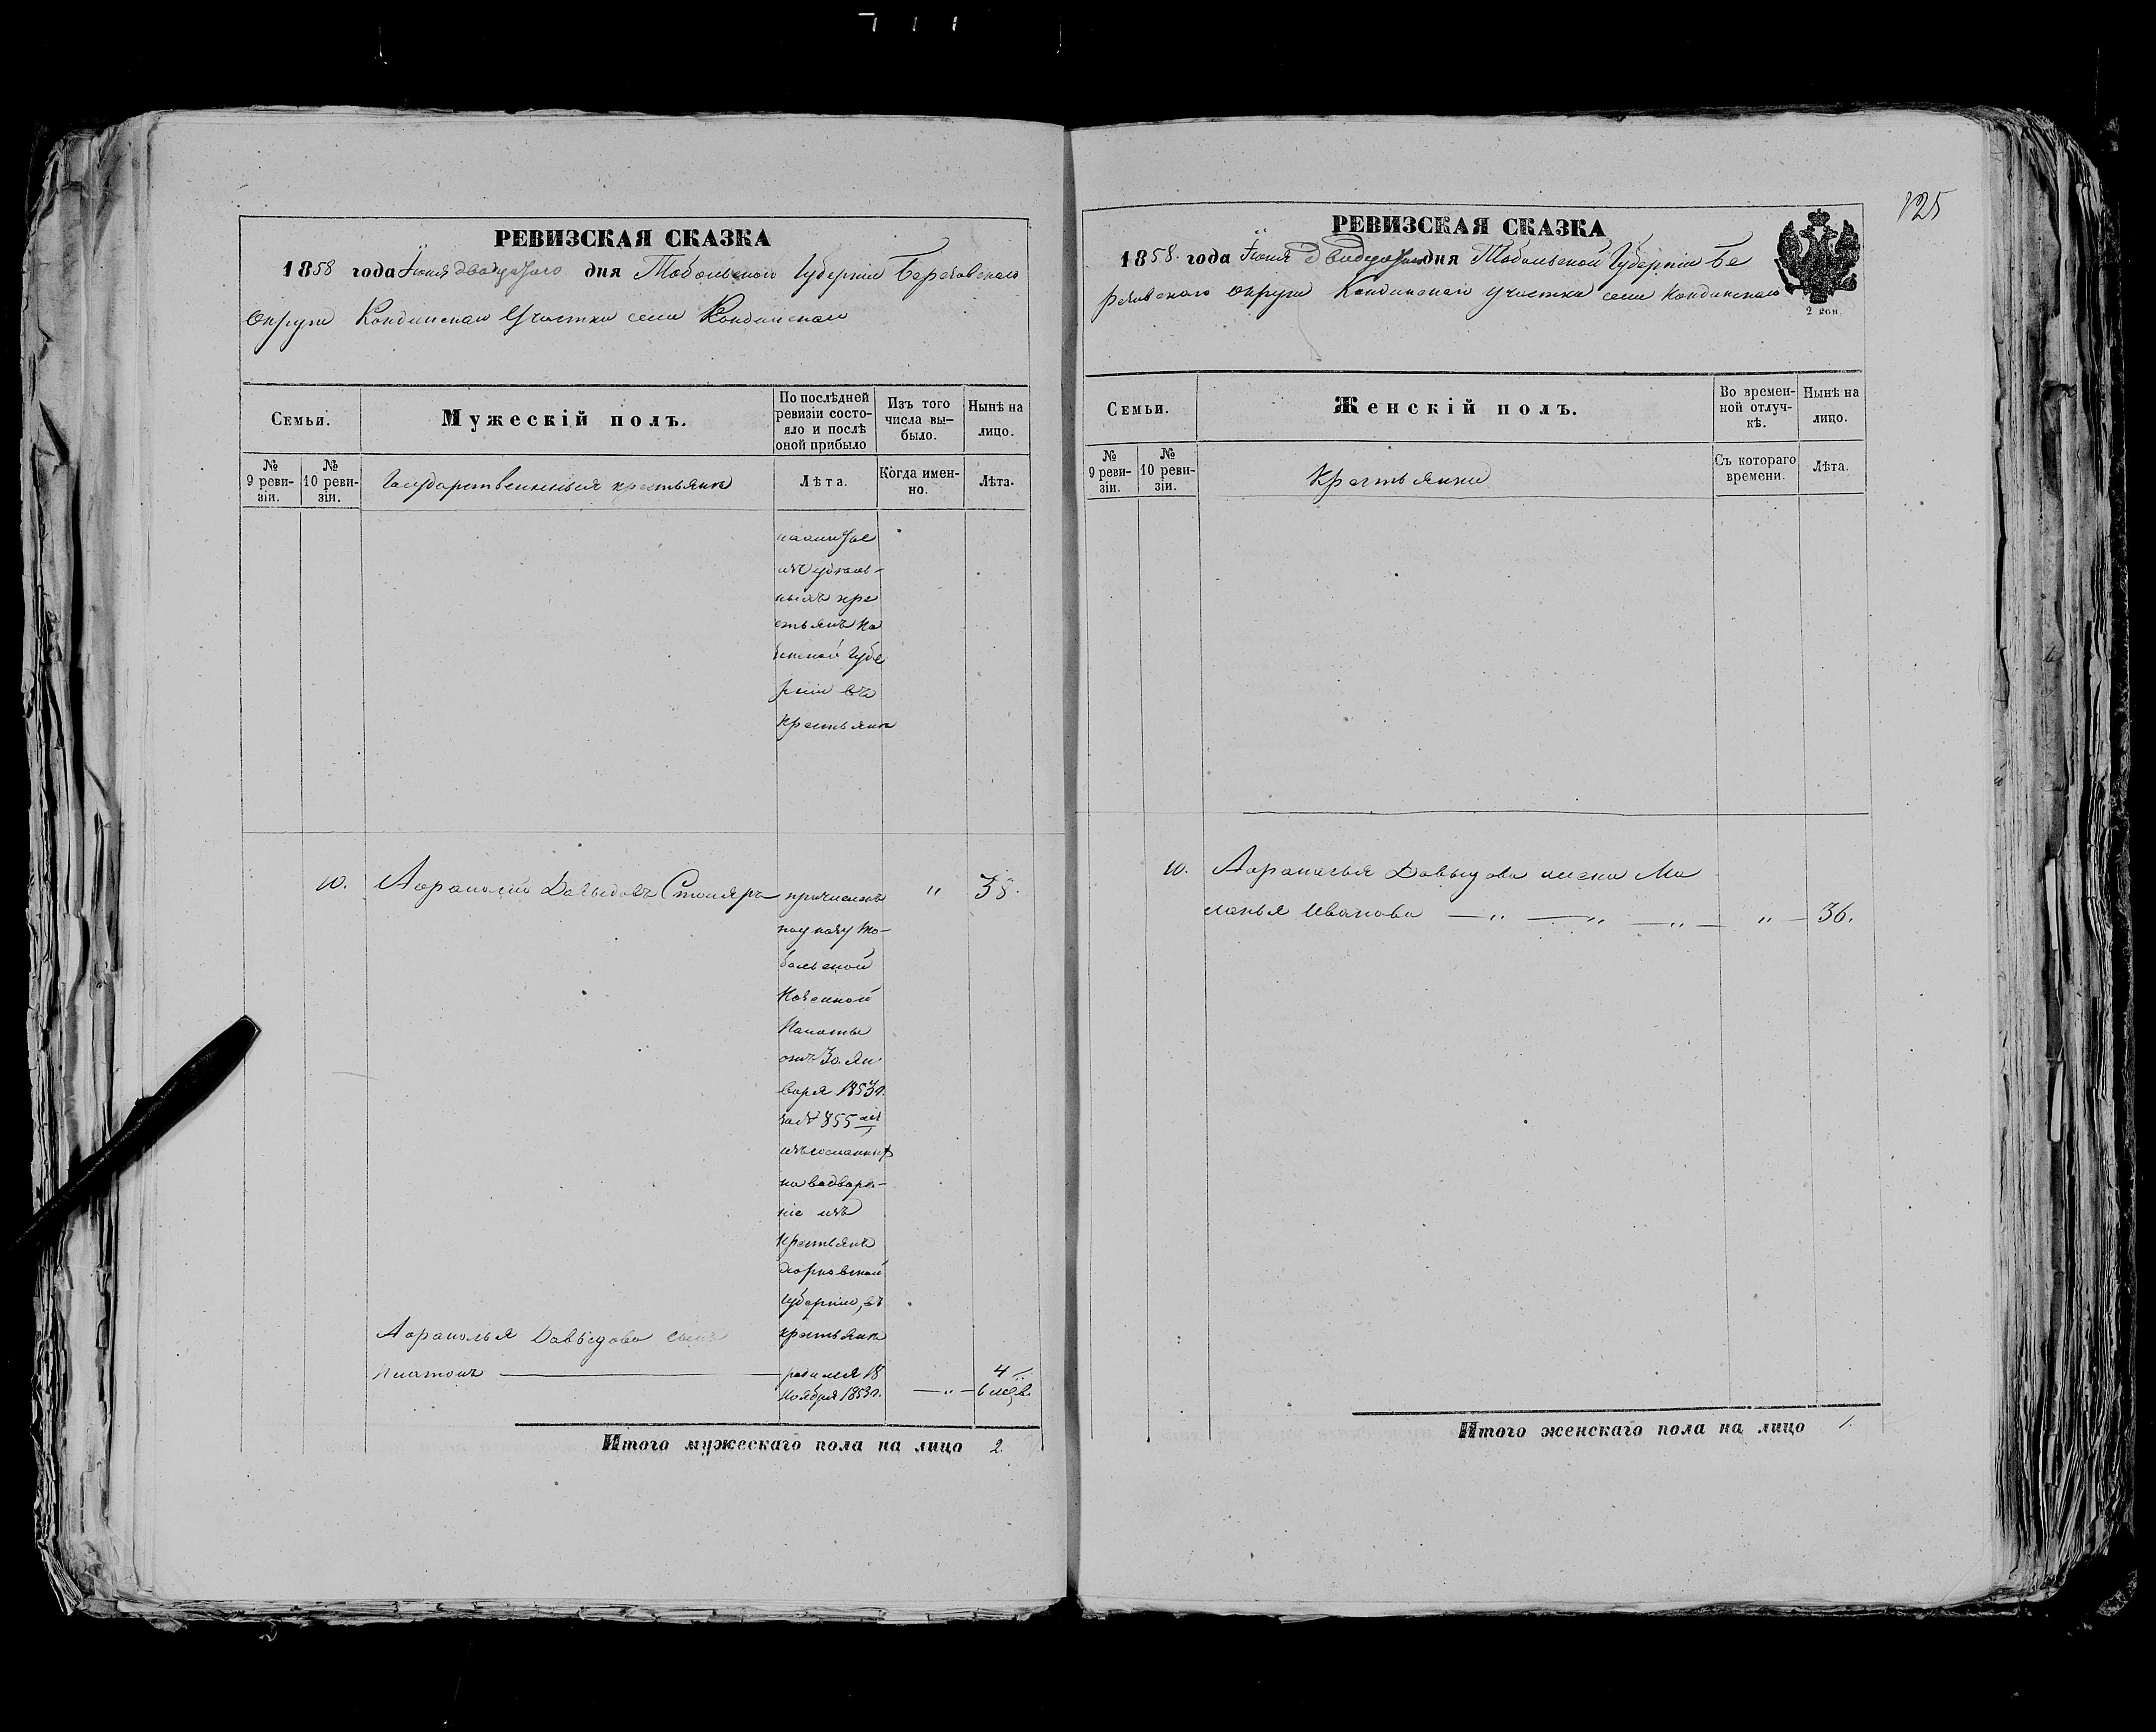 РЕВИЗСКАЯ СКАЗКА
1858 года Іюня двадцатаго дня Тобольской Губерніи Березовскаго
Округи Кондинскаго Участка села Кондинскаго
Семьи.
Мужескій полъ.
По послѣдней
ревизіи состо-
яло и послѣ
оной прибыло
Изъ того
числа вы-
было.
Нынѣ на
лицо.
№
9 реви-
зіи.
№
10 реви-
зіи.
Государственныя крестьяне
Лѣта.
Когда имен-
но.
Лѣта.
изъ удѣль-
ныхъ кре
стьянъ Ка
занской Губе
рніи въ
крестьяне
10.
Афонасій Давыдовъ Столяръ
причисленъ
по указу То-
больской
Казенной
Палаты
отъ 30 Ян
варя 1853 г.
за № 355
изъ сосланныхъ
на водворе-
ніе изъ
крестьянъ
Харковской
Губерніи, въ
крестьяне
" 38.
Афонасья Давыдова сынъ
Платонъ
родился 18
Ноября 1853 г.
— " —
4
6 мѣ.
Итого мужескаго пола на лицо 2.
125
РЕВИЗСКАЯ СКАЗКА
1858. года Іюня Двадцатаго дня Тобольской Губерніи Бе
резовскаго округи Кондинскаго участка села Кондинскаго
2 коп.
Семьи.
Женскій полъ.
Во времен-
ной отлуч-
кѣ.
Нынѣ на
лицо.
№
9 реви-
зіи.
№
10 реви-
зіи.
Крестьянки
Съ котораго
времени.
Лѣта.
10. Афонасья Давыдова жена Ма
ланья Иванова — " — " — " — " — 36.
Итого женскаго пола на лицо 1.